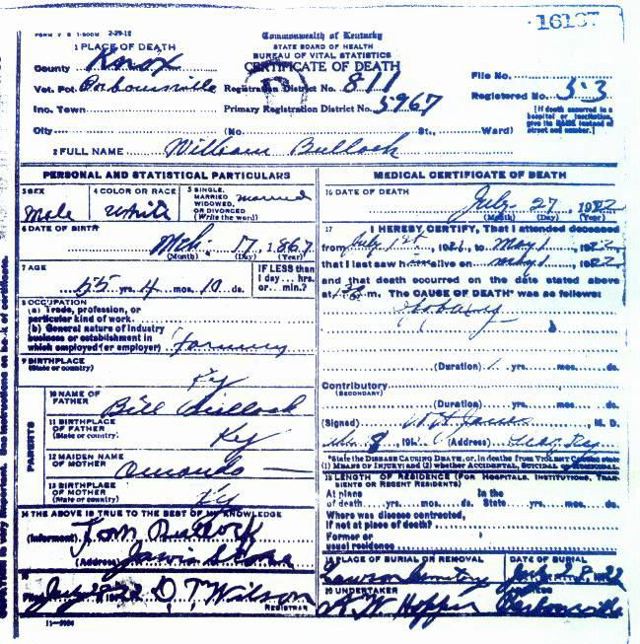 16137
FORM V S 1-500M 2-29-12
Commonwealth of Kentucky
STATE BOARD OF HEALTH
BUREAU OF VITAL STATISTICS
CERTIFICATE OF DEATH
1 PLACE OF DEATH
County Knox
Vot. Pct. Barbourville Registration District No. 811
File No.
Inc. Town Primary Registration District No. 5967
Registered No. 53
City (No. St., Ward)
[If death occurred in a hospital or institution, give its NAME instead of street and number.]
2 FULL NAME William Bullock
PERSONAL AND STATISTICAL PARTICULARS
3 SEX Male
4 COLOR OR RACE White
5 SINGLE, MARRIED, WIDOWED, OR DIVORCED (Write the word) married
6 DATE OF BIRTH Mch. 17, 1867
(Month) (Day) (Year)
7 AGE 55 yrs. 4 mos. 10 ds.
IF LESS than 1 day... hrs. or... min.?
8 OCCUPATION
(a) Trade, profession, or particular kind of work.
(b) General nature of industry business or establishment in which employed (or employer) farming
9 BIRTHPLACE (State or country) Ky
PARENTS
10 NAME OF FATHER Bill Bullock
11 BIRTHPLACE OF FATHER (State or country) Ky
12 MAIDEN NAME OF MOTHER Amanda —
13 BIRTHPLACE OF MOTHER (State or country) Ky
14 THE ABOVE IS TRUE TO THE BEST OF MY KNOWLEDGE
(Informant) Tom Bullock
(Address) Jarvis Store
15
Filed July 28 1922 D T Wilson
REGISTRAR
MEDICAL CERTIFICATE OF DEATH
16 DATE OF DEATH July 27, 1922
(Month) (Day) (Year)
17 I HEREBY CERTIFY, That I attended deceased
from July 1st, 1921, to May 1, 1922
that I last saw him alive on May 1, 1922
and that death occurred on the date stated above
at m. The CAUSE OF DEATH* was as follows:
(Duration) yrs. mos. ds.
Contributory (SECONDARY)
(Duration) yrs. mos. ds.
(Signed) M. D.
8 191 (Address)
*State the DISEASE CAUSING DEATH, or, in deaths from VIOLENT CAUSES state (1) MEANS OF INJURY; and (2) whether ACCIDENTAL, SUICIDAL or HOMICIDAL.
18 LENGTH OF RESIDENCE (FOR HOSPITALS, INSTITUTIONS, TRANSIENTS OR RECENT RESIDENTS)
At place of death yrs. mos. ds. In the State yrs. mos. ds.
Where was disease contracted, if not at place of death?
Former or usual residence
19 PLACE OF BURIAL OR REMOVAL Cemetery
DATE OF BURIAL July 28, 1922
20 UNDERTAKER K W Hopper
ADDRESS Barbourville
11-5184